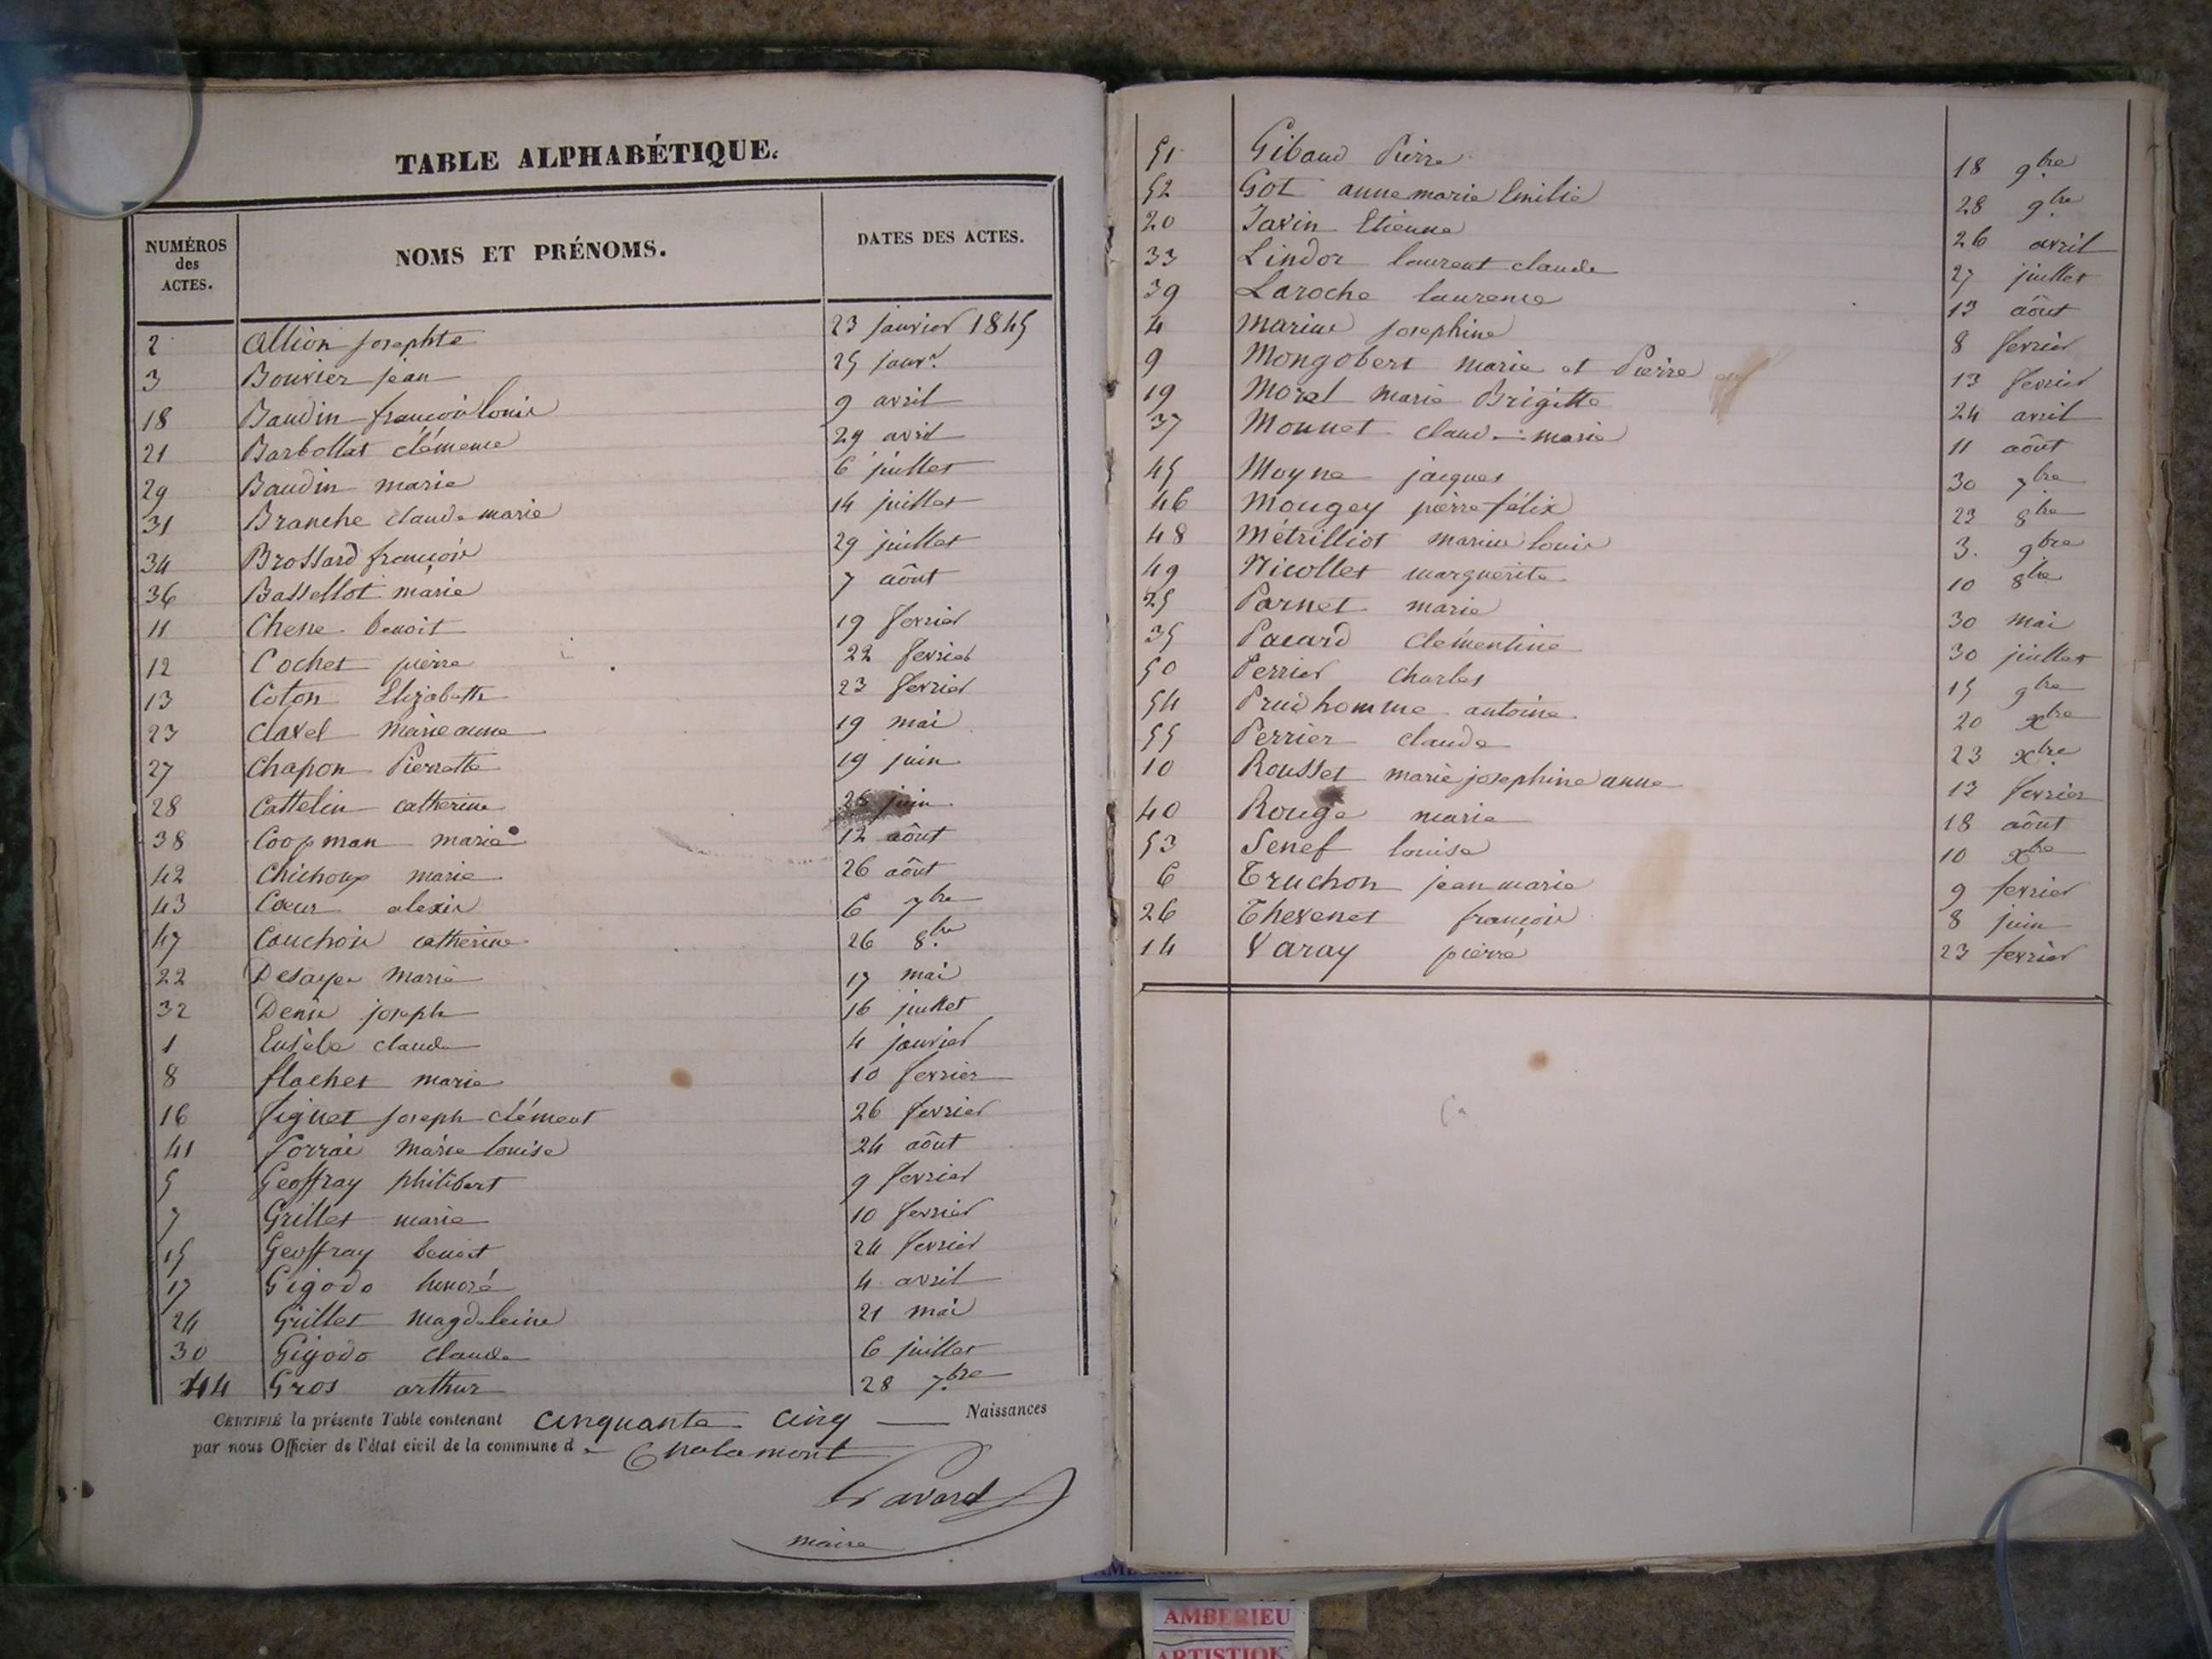 TABLE ALPHABÉTIQUE.
NUMÉROS des ACTES. NOMS ET PRÉNOMS. DATES DES ACTES.
2 Allion josephte 23 janvier 1845
3 Bouvier jean 25 janvr.
18 Baudin françois louis 9 avril
21 Barbollat clémence 29 avril
29 Baudin marie 6 juillet
31 Branche claude marie 14 juillet
34 Brossard françois 29 juillet
36 Bassellot marie 7 aôut
11 Chene benoit 19 fevrier
12 Cochet pierre 22 fevrier
13 Coton Elizabeth 23 fevrier
23 Clavel marie anne 19 mai
27 Chapon Pierrette 19 juin
28 Cattelin catherine 26 juin
38 Coopman marie 12 aôut
42 Chichoux marie 26 aôut
43 Coeur alexis 6 7bre
47 Couchoin catherine 26 8bre
22 Desayes marie 17 mai
32 Denis joseph 16 juillet
1 Eusèbe claude 4 janvier
8 flachet marie 10 fevrier
16 figuet joseph clément 26 fevrier
41 forrai marie louise 24 aôut
5 Geoffray philibert 9 fevrier
7 Grillet marie 10 fevrier
15 Geoffray benoit 24 fevrier
17 Gigodo honoré 4 avril
24 Grillet magdeleine 21 mai
30 Gigodo claude 6 juillet
44 Gros arthur 28 7bre
CERTIFIÉ la présente Table contenant cinquante cinq Naissances
par nous Officier de l'état civil de la commune de Chalamont
maire
51 Gibaud Pierre 18 9bre
52 Got anne marie Emilie 28 9bre
20 Javin Etienne 26 avril
33 Lindor laurent claude 27 juillet
39 Laroche laurence 13 aôut
4 Marius josephine 8 fevrier
9 Mongobert marie et Pierre 13 fevrier
19 Morel marie Brigitte 24 avril
37 Monnet claude marie 11 aôut
45 Moyne jacques 30 7bre
46 Mougey pierre félix 23 8bre
48 Métrilliot marius louis 3. 9bre
49 Nicollet marguerite 10 8bre
25 Parnet marie 30 mai
35 Pacard clémentine 30 juillet
50 Perrier charles 15 9bre
54 Prudhomme antoine 20 xbre
55 Perrier claude 23 xbre
10 Rousset marie josephine anne 13 fevrier
40 Rouge marie 18 aôut
53 Senef louise 10 xbre
6 Truchon jean marie 9 fevrier
26 Thevenet françois 8 juin
14 Varay pierre 23 fevrier
AMBERIEU
ARTISTIQK